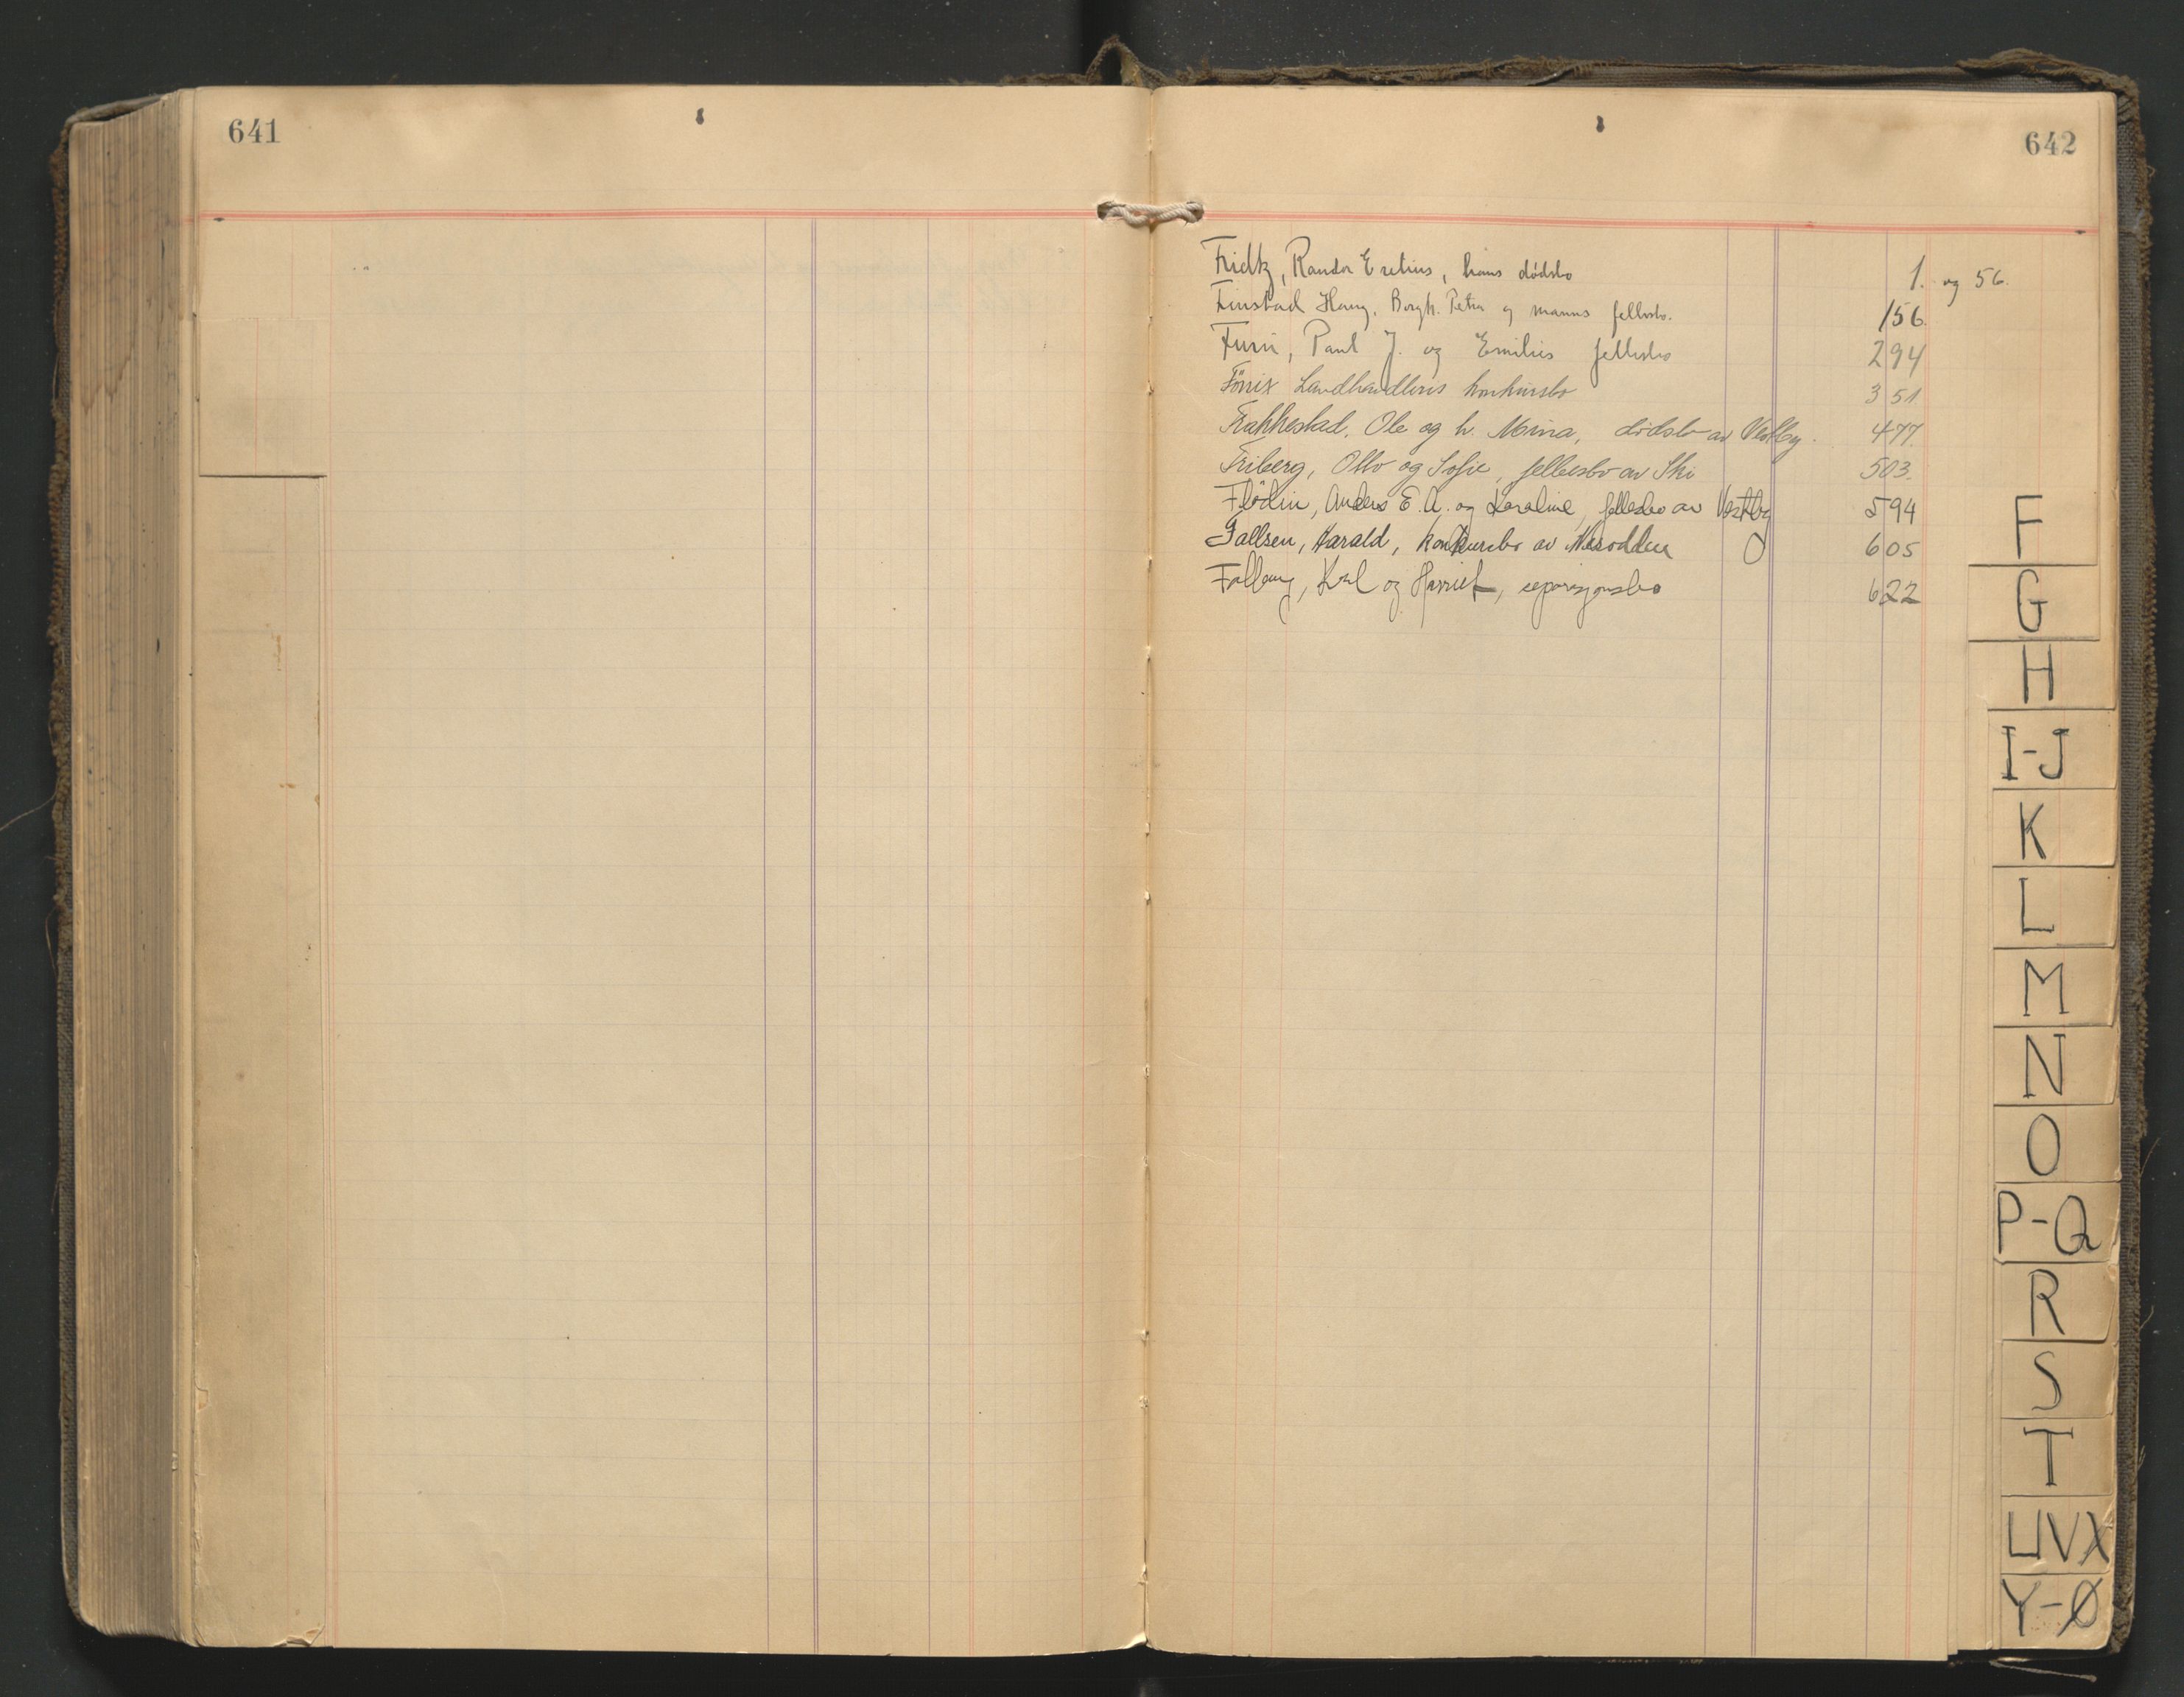 641
642
Fridtz, Randor Eretius, hans dødsbo 1. og 56.
Finstad Haug, Borgh. Petra og manns fellesbo. 156.
Furu, Paul J. og Emilies fellesbo 294
Landhandleris konkursbo 351
Frakkestad, Ole og h. Mina, dødsbo av Vestby. 477.
Friberg, Otto og Sofie, fellesbo av Ski 503.
Flödin, Anders E. A. og Karoline, fellesbo av Vestby 594
Fallsen, Harald, konkursbo av Nesodden 605
Fallang, Karl og Harriet, separasjonsbo 622
F
G
H
I-J
K
L
M
N
O
P-Q
R
S
T
UVX
Y-Ø